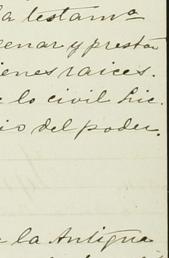 la testamª
enar y prestar
ienes raices.
e lo civil Lic.
io del poder.
e la Antigua